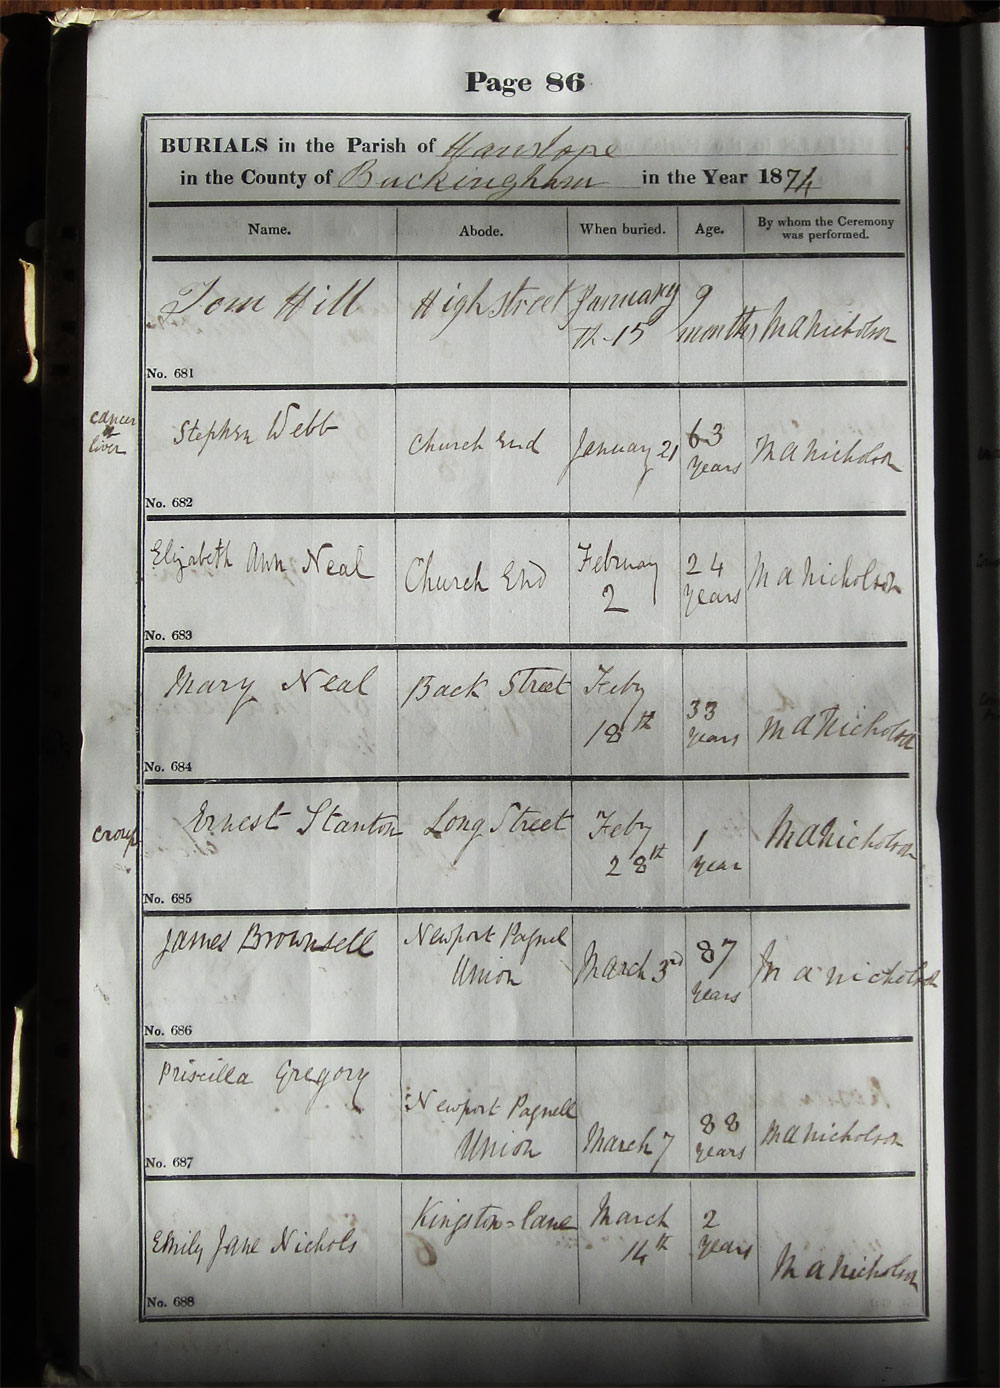 Page 86
BURIALS in the Parish of Hanslope
in the County of Buckingham in the Year 1874
Name. Abode. When buried. Age. By whom the Ceremony
was performed.
Tom Hill High street January 9
th-15 months M A Nicholson
No. 681
cancer
of
liver
Stephen Webb Church End January 21 63
years M A Nicholson
No. 682
Elizabeth Ann Neal Church End February 24
2 years M A Nicholson
No. 683
Mary Neal Back Street Feby
18th 33
years M A Nicholson
No. 684
croup
Ernest Stanton Long Street Feby
28th 1
year M A Nicholson
No. 685
James Brownsell Newport Pagnel
Union March 3rd 87
years M A Nicholson
No. 686
Priscilla Gregory
Newport Pagnell
Union March 7 88
years M A Nicholson
No. 687
Emily Jane Nichols Kingston-lane March
14th 2
years M A Nicholson
No. 688